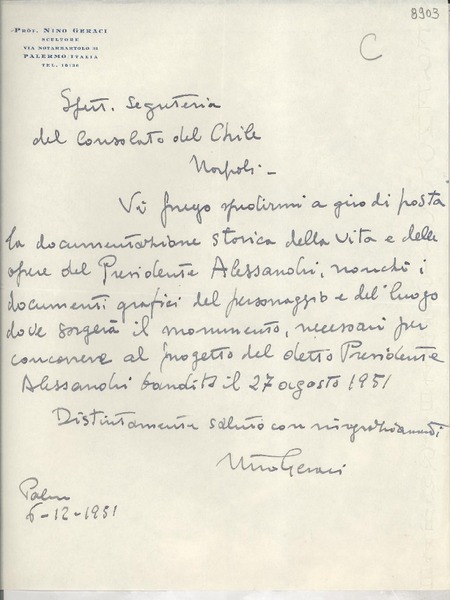 8903
C
PROF. NINO GERACI
SCULTORE
VIA NOTARBARTOLO
PALERMO (ITALIA
TEL.
Spett. Segreteria
del Consolato del Chile
Napoli -
Vi prego spedirmi a giro di posta
la documentazione storica della vita e delle
opere del Presidente Alessandri, nonché i
documenti grafici del personaggio e del luogo
dove sorgerà il monumento, necessari per
concorrere al progetto del detto Presidente
Alessandri bandito il 27 agosto 1951
Distintamente saluto con ringraziamenti
Nino Geraci
6-12-1951